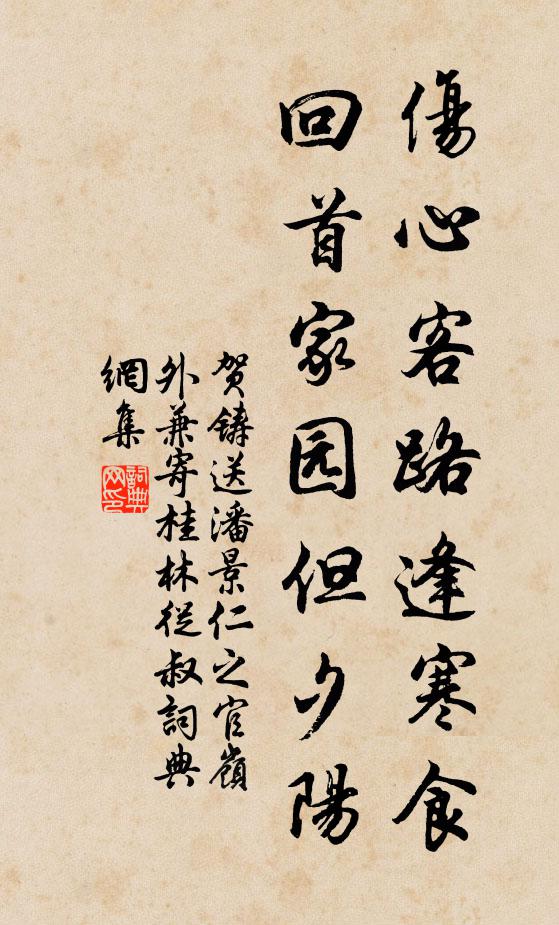 傷心客路逢寒食
回首家园但夕陽
贺鑄送潘景仁之官嶺
外兼寄桂林從叔詞典
網集
詞典
网印